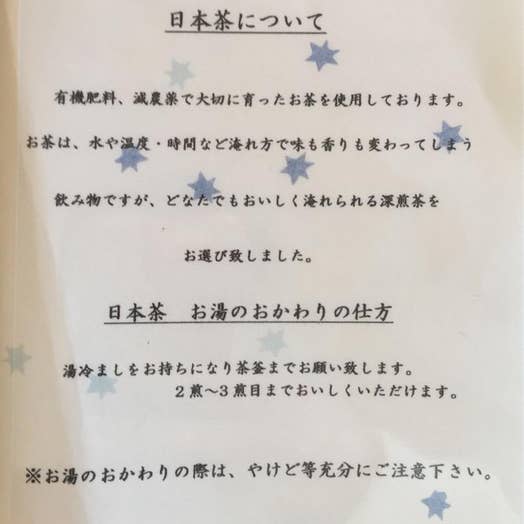 日本茶について
有機肥料、減農薬で大切に育ったお茶を使用しております。
お茶は、水や温度・時間など淹れ方で味も香りも変わってしまう
飲み物ですが、どなたでもおいしく淹れられる深煎茶を
お選び致しました。
日本茶　お湯のおかわりの仕方
湯冷ましをお持ちになり茶釜までお願い致します。
２煎～３煎目までおいしくいただけます。
※お湯のおかわりの際は、やけど等充分にご注意下さい。